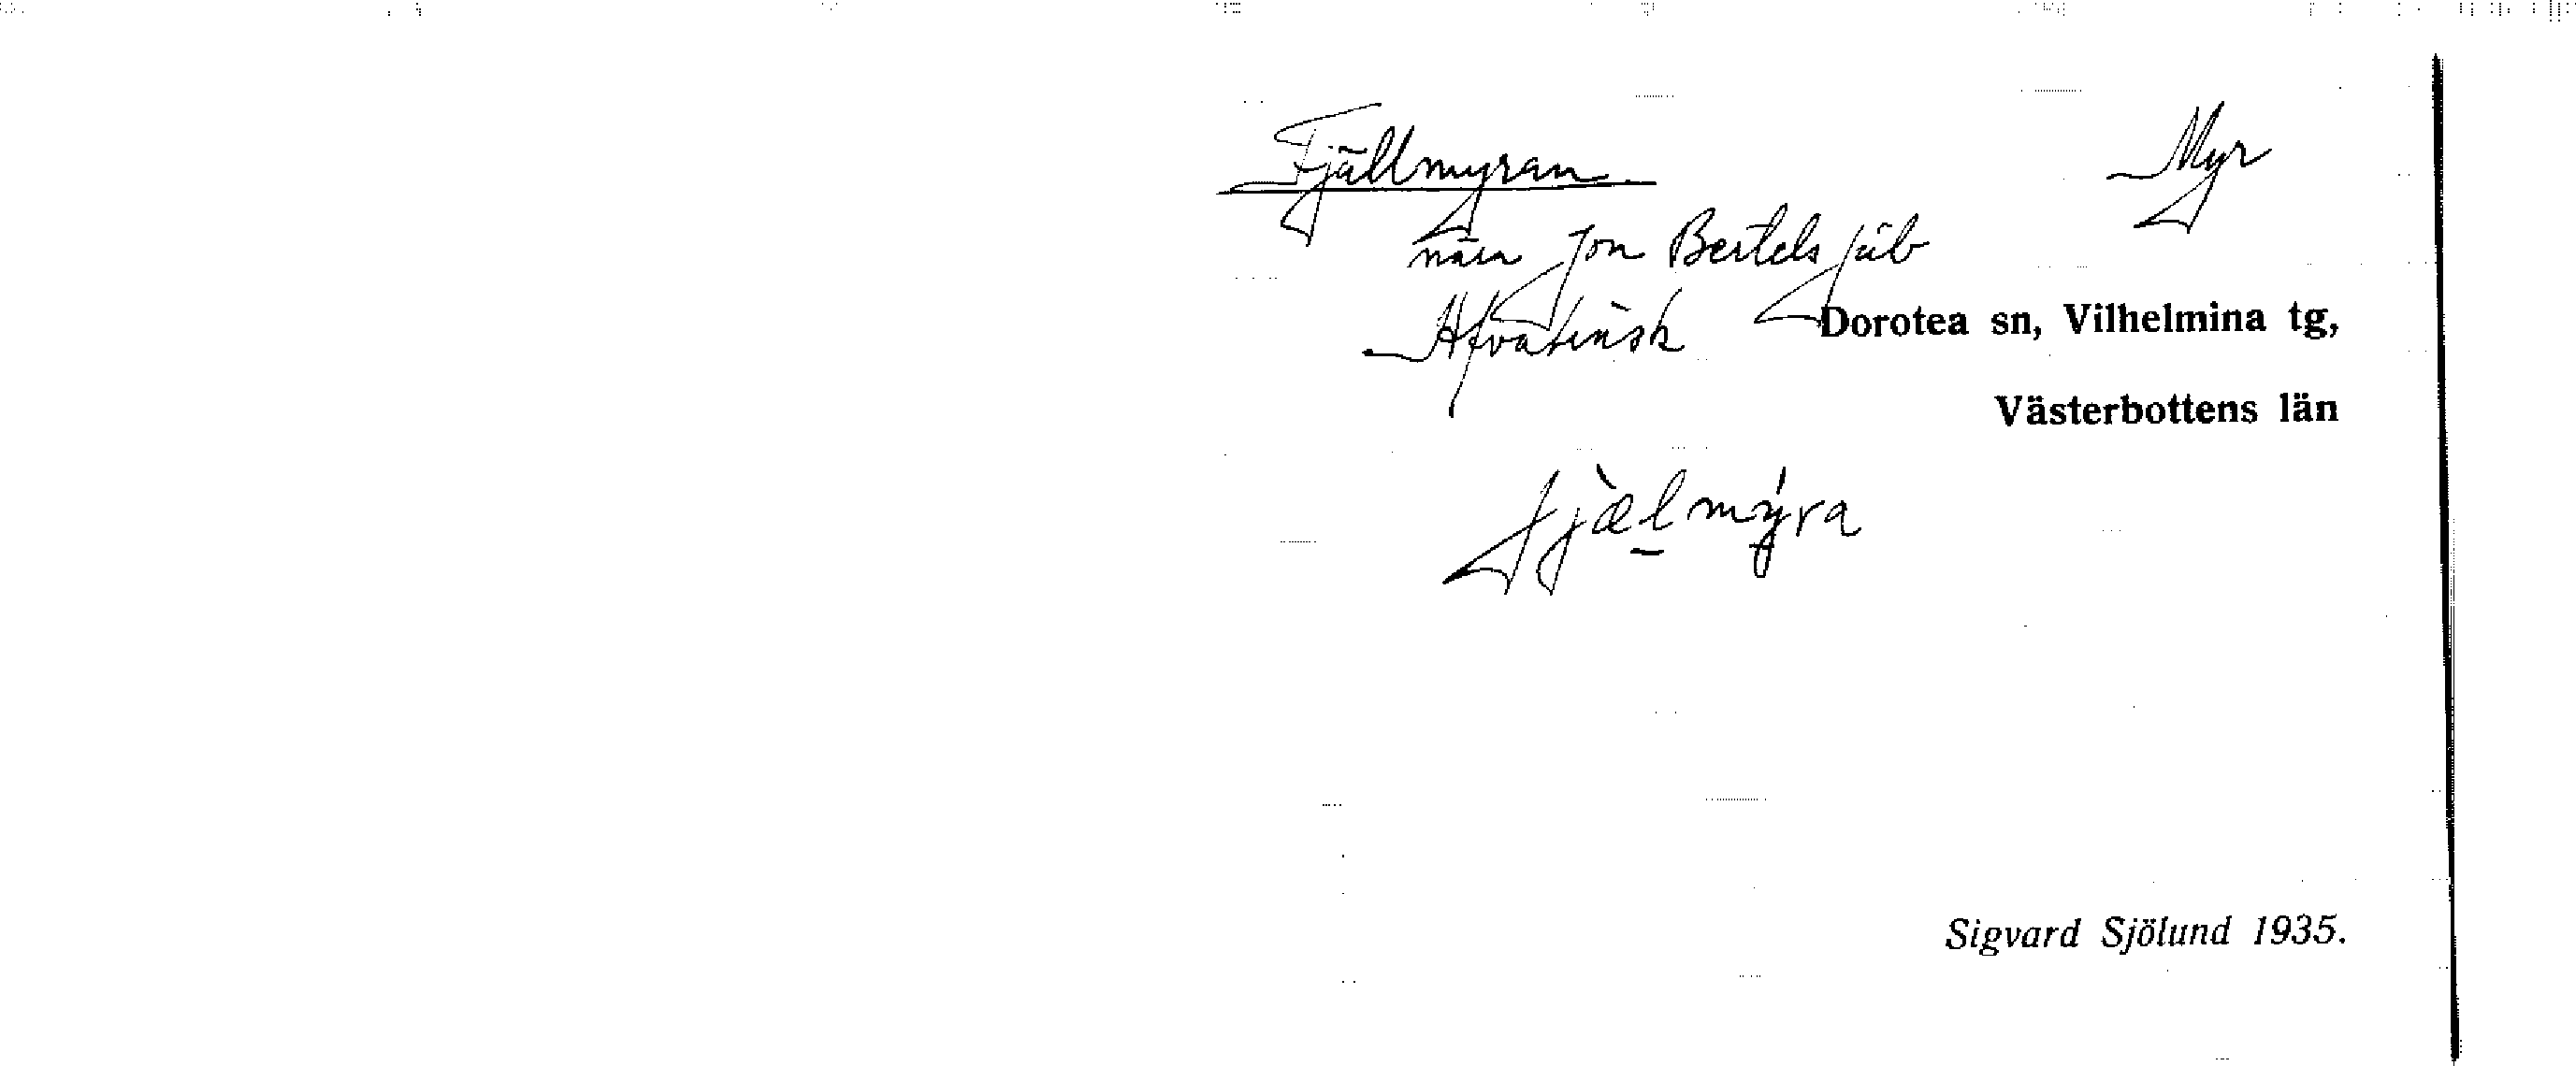 Fjällmyran Myr
nära Jon Bertels jäb
Avaträsk
Dorotea sn, Vilhelmina tg,
Västerbottens län
fjæ̀lmýra
Sigvard Sjölund 1935.